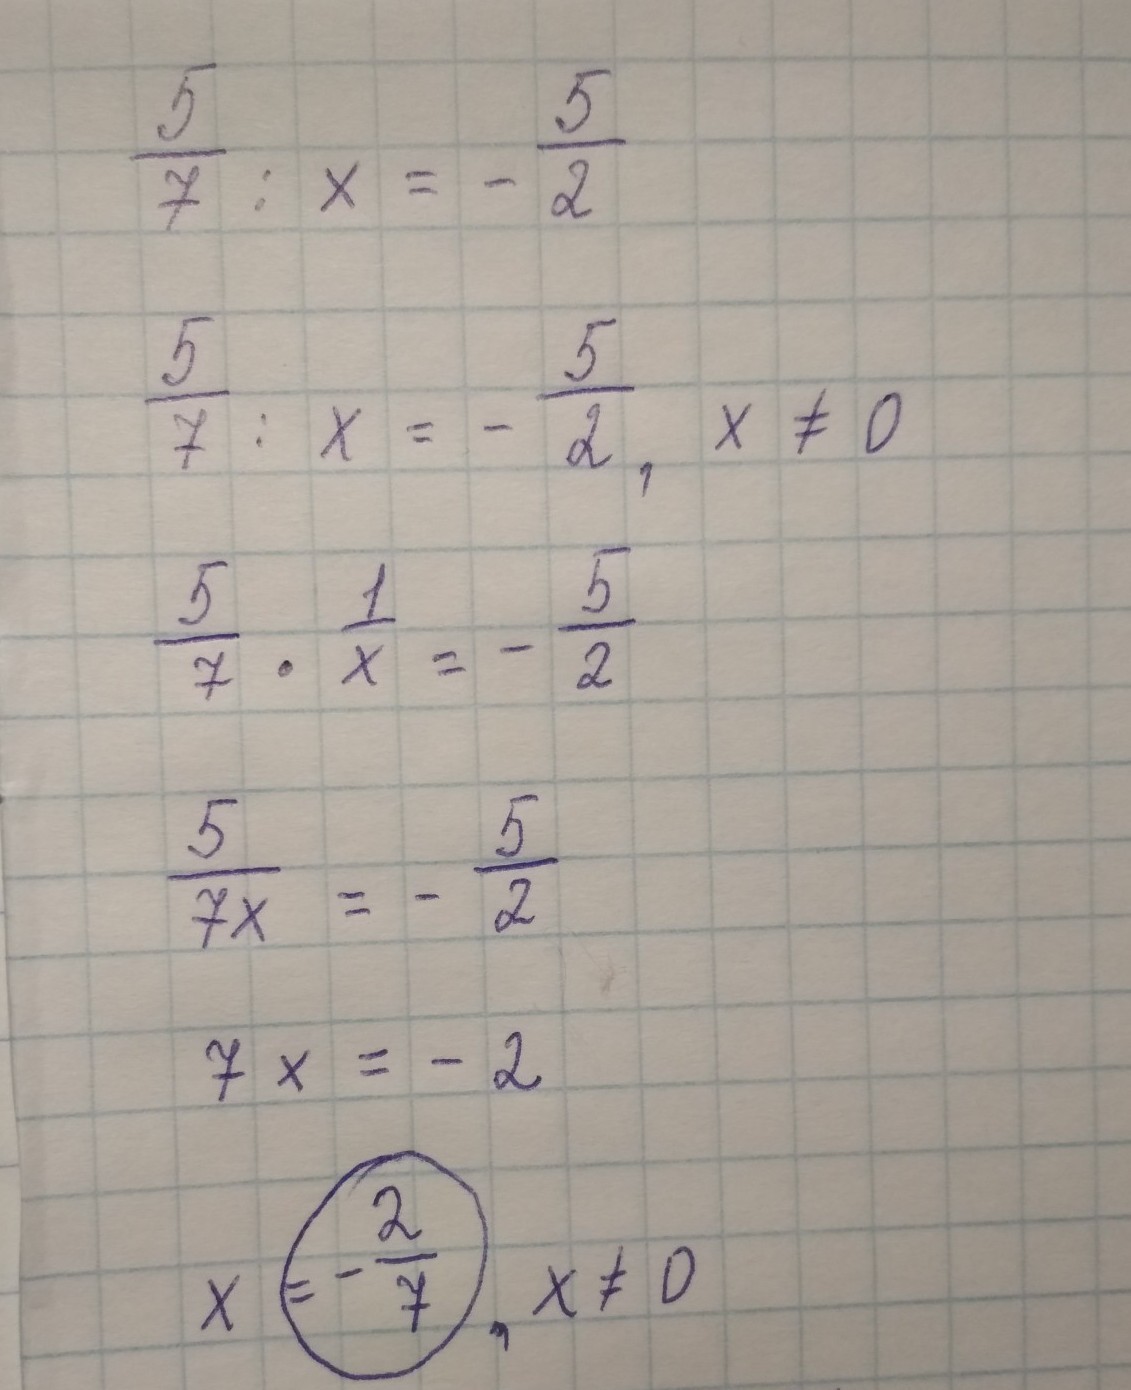 5/7 : x = - 5/2
5/7 : x = - 5/2, x ≠ 0
5/7 · 1/x = - 5/2
5/7x = - 5/2
7x = - 2
x = - 2/7, x ≠ 0